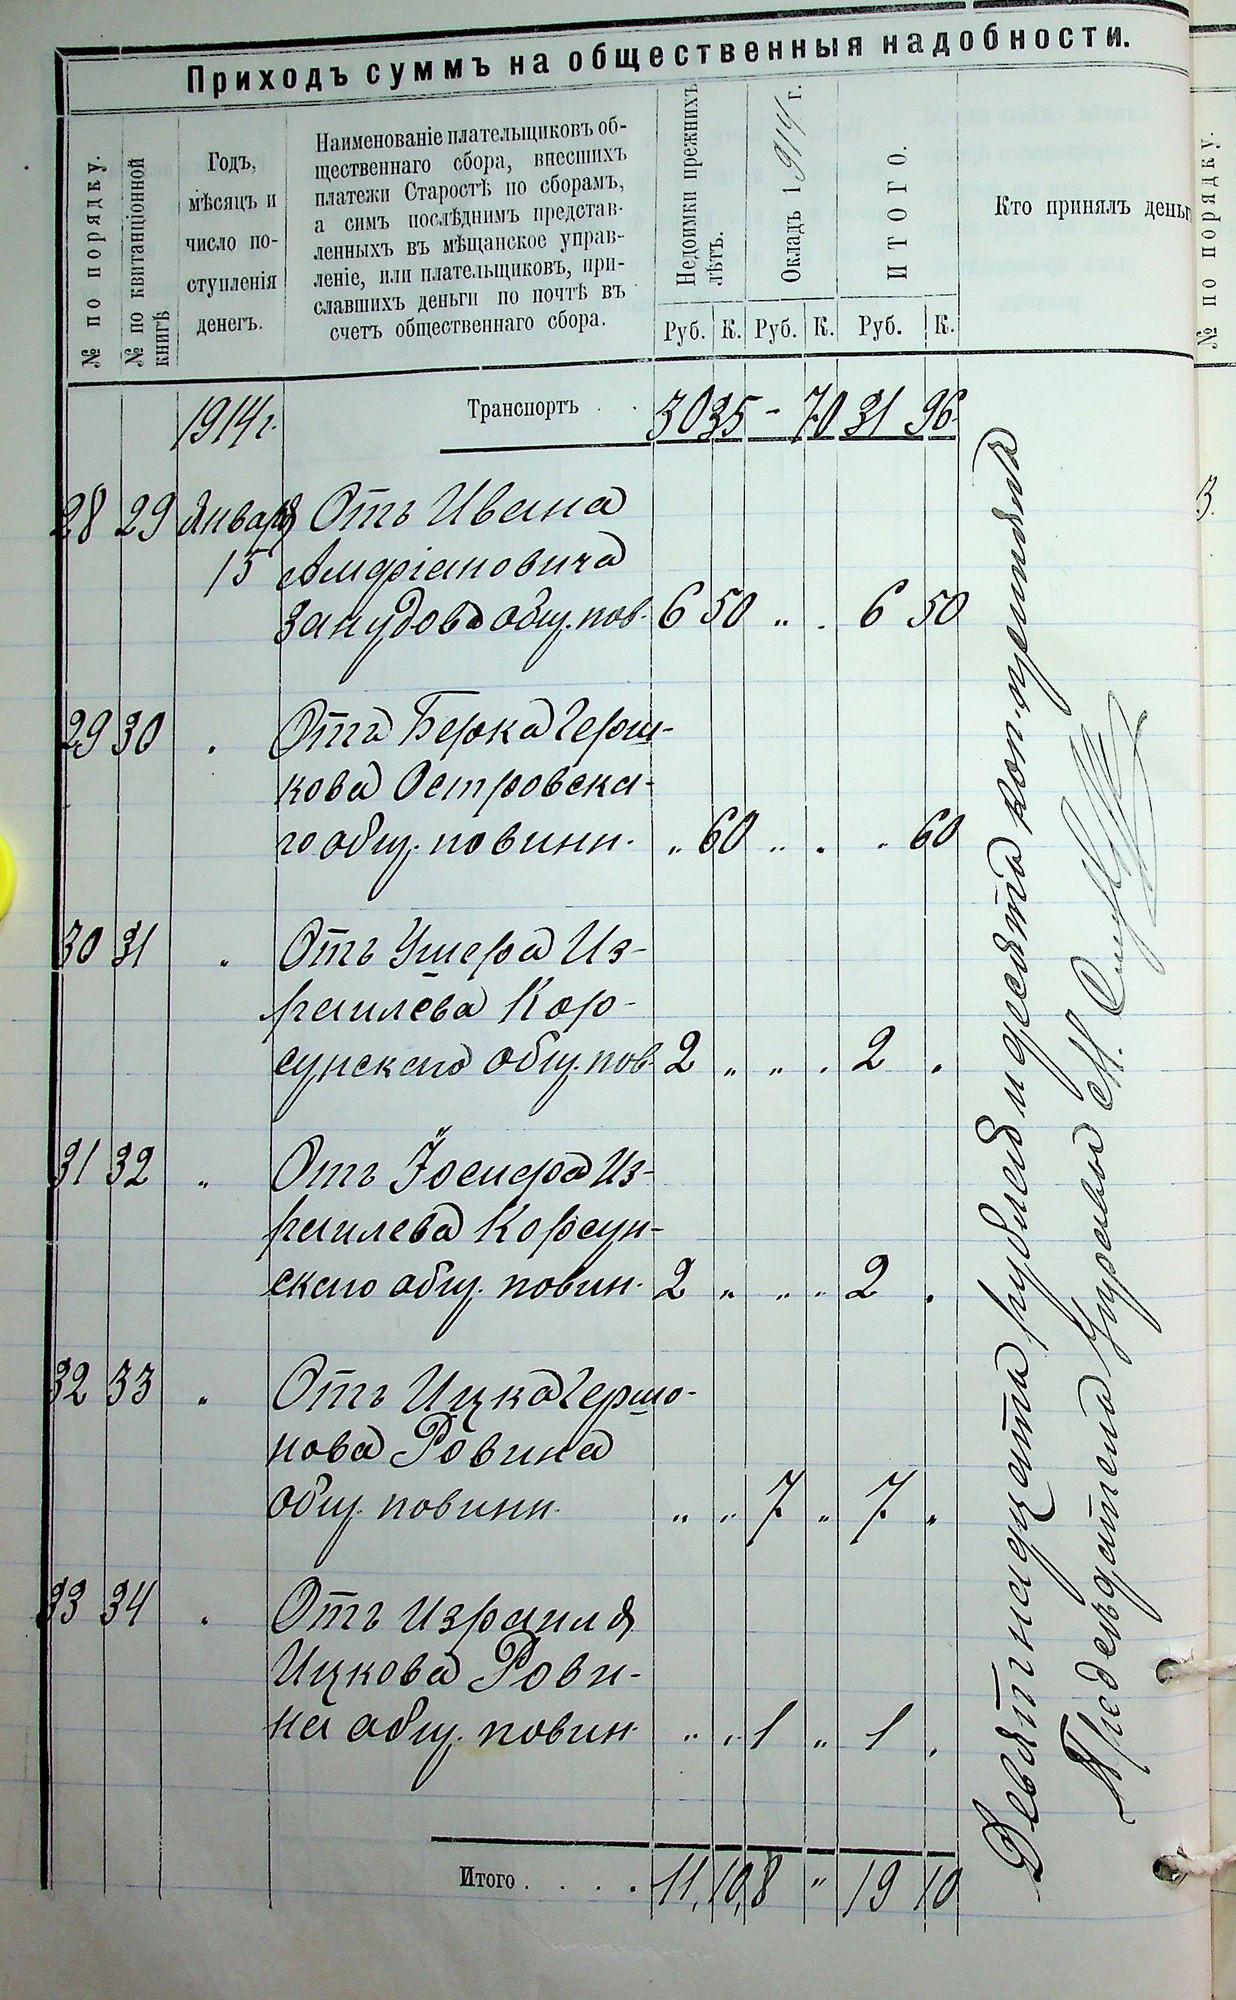 Приходъ суммъ на общественныя надобности.
№ по порядку.
№ по квитанціонной
книгѣ
Годъ,
мѣсяцъ и
число по-
ступленія
денегъ.
Наименованіе плательщиковъ об-
щественнаго сбора, внесшихъ
платежи Старостѣ по сборамъ,
а симъ послѣднимъ представ-
ленныхъ въ мѣщанское управ-
леніе, или плательщиковъ, при-
славшихъ деньги по почтѣ въ
счетъ общественнаго сбора.
Недоимки прежнихъ
лѣтъ.
Окладъ 1914 г.
ИТОГО.
Кто принялъ деньг
Руб. К. Руб. К. Руб. К.
1914 г. Транспортъ . . 30 35 - 70 31 96
28 29 Января Отъ Ивана
15
Занудова общ. пов. 6 50 „ . 6 50
29 30 „ Отъ Берка Герш-
кова Островска-
го общ. повинн. „ 60 „ . „ 60
30 31 „ Отъ Умера Из-
раилева Кор-
сунскаго общ. пов. 2 „ „ . 2 .
31 32 „ Отъ Іосифа Из-
раилева Корсун-
скаго общ. повин. 2 „ „ „ 2 .
32 33 „ Отъ Ицка Гершо-
нова Ровина
общ. повинн. „ „ 7 „ 7 „
33 34 „ Отъ Израиля
Ицкова Рови-
на общ. повин. „ „ 1 „ 1 .
Итого . . . . 11, 10, 8 „ 19 10
Девятнадцать рублей и десять коп. принялъ
Предсѣдатель Управы М.
№ по порядку.
3.